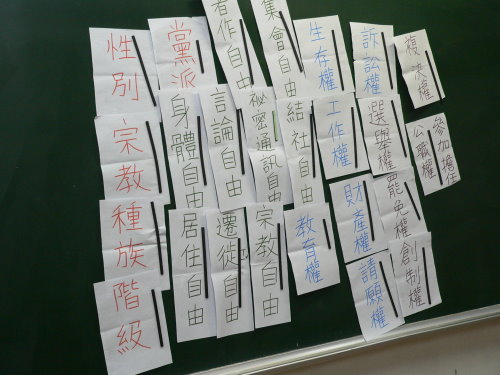 性別
黨派
著作自由
集會自由
生存權
訴訟權
複決權
宗教
身體自由
言論自由
祕密通訊自由
結社自由
工作權
選舉權
參加擔任
公職權
種族
居住自由
遷徙自由
宗教自由
教育權
財產權
罷免權
階級
請願權
創制權